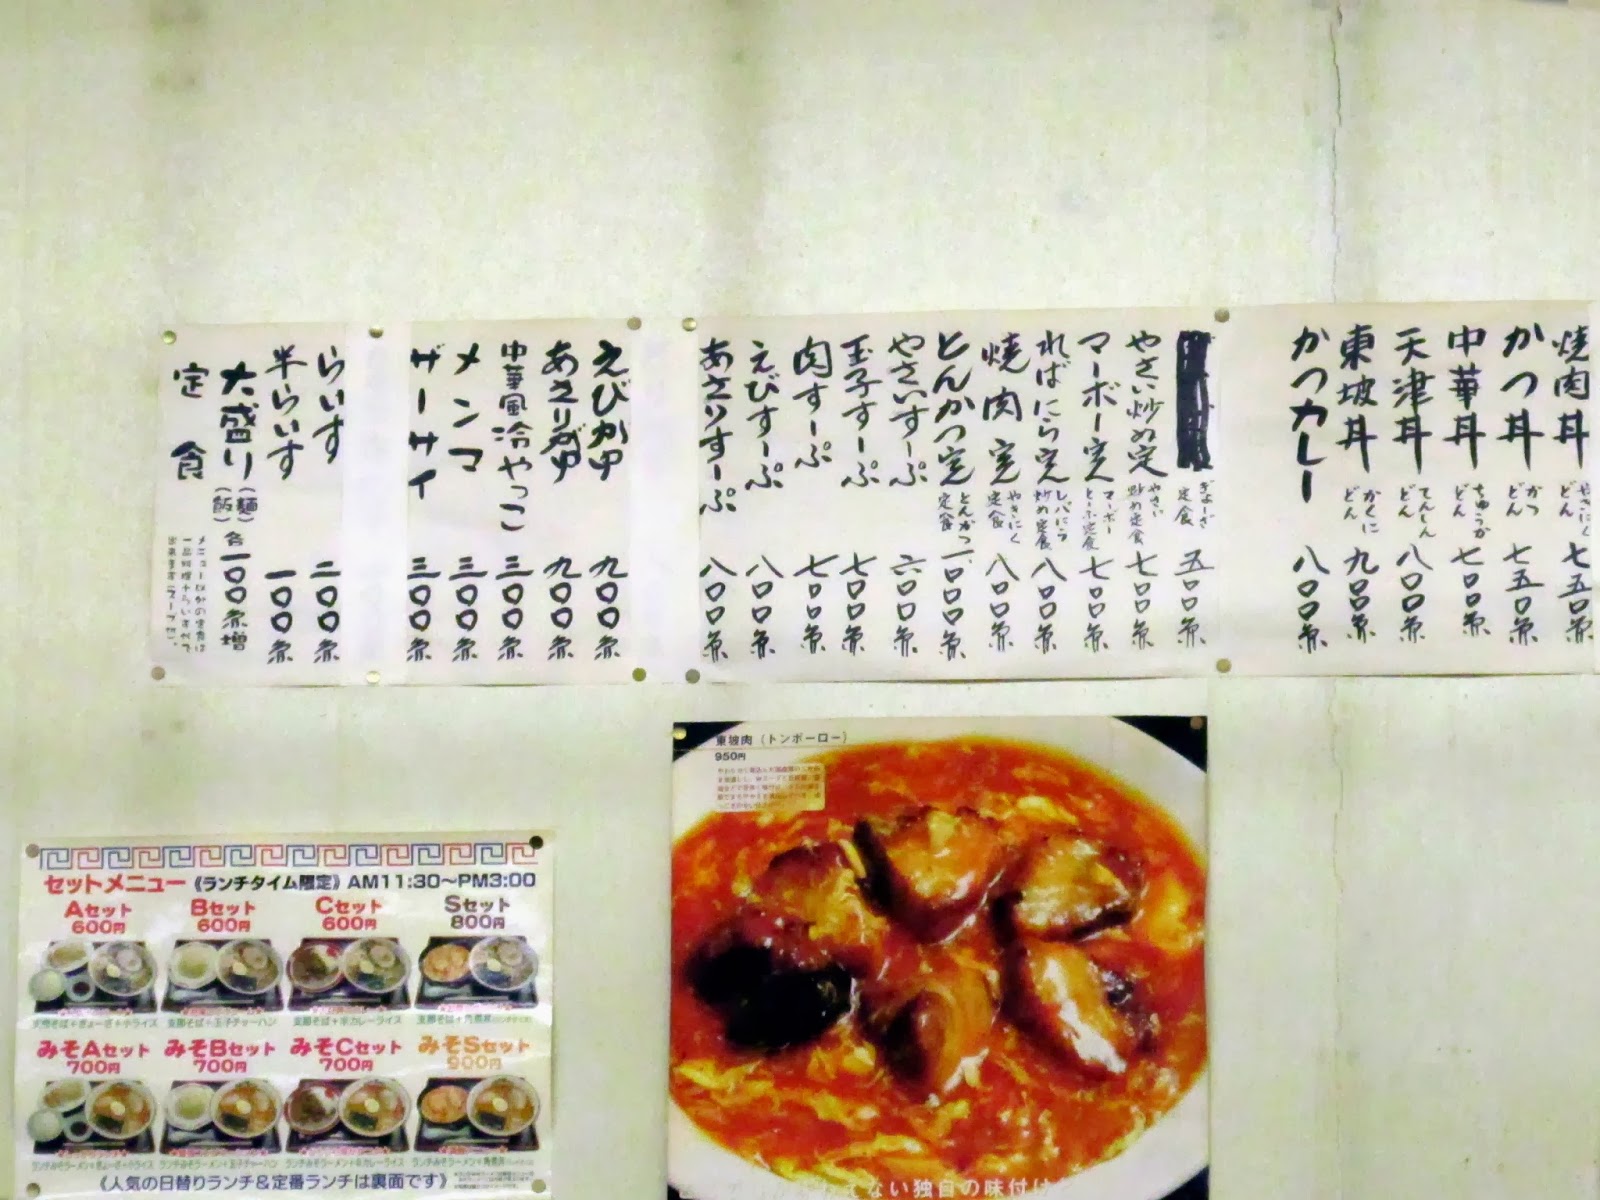 焼肉丼 やきにくどん 七五〇円
かつ丼 かつどん 七五〇円
中華丼 ちゅうかどん 七〇〇円
天津丼 てんしんどん 八〇〇円
東坡丼 かくにどん 九〇〇円
かつカレー 八〇〇円
ぎょーざ定食 五〇〇円
やさい炒め定 やさい炒め定食 七〇〇円
マーボー定 マーボーとーふ定食 七〇〇円
ればにら定 レバにら炒め定食 八〇〇円
焼肉定 やきにく定食 八〇〇円
とんかつ定 とんかつ定食 一、〇〇〇円
やさいすーぷ 六〇〇円
玉子すーぷ 七〇〇円
肉すーぷ 七〇〇円
えびすーぷ 八〇〇円
あさりすーぷ 八〇〇円
えびがゆ 九〇〇円
あさりがゆ 九〇〇円
中華風冷やっこ 三〇〇円
メンマ 三〇〇円
ザーサイ 三〇〇円
らいす 二〇〇円
半らいす 一〇〇円
大盛り(麺)(飯)各一〇〇円増
定食
メニュー以外の定食は
東坡肉(トンポーロー)
950円
てない独自の味付け
セットメニュー《ランチタイム限定》AM11:30〜PM3:00
Aセット Bセット Cセット Sセット
600円 600円 600円 800円
支那そば+ぎょーざ+小ライス 支那そば+玉子チャーハン 支那そば+半カレーライス 支那そば+角煮丼
みそAセット みそBセット みそCセット みそSセット
700円 700円 700円 900円
ランチみそラーメン+ぎょーざ+小ライス ランチみそラーメン+玉子チャーハン ランチみそラーメン+半カレーライス ランチみそラーメン+角煮丼
《人気の日替りランチ&定番ランチは裏面です》